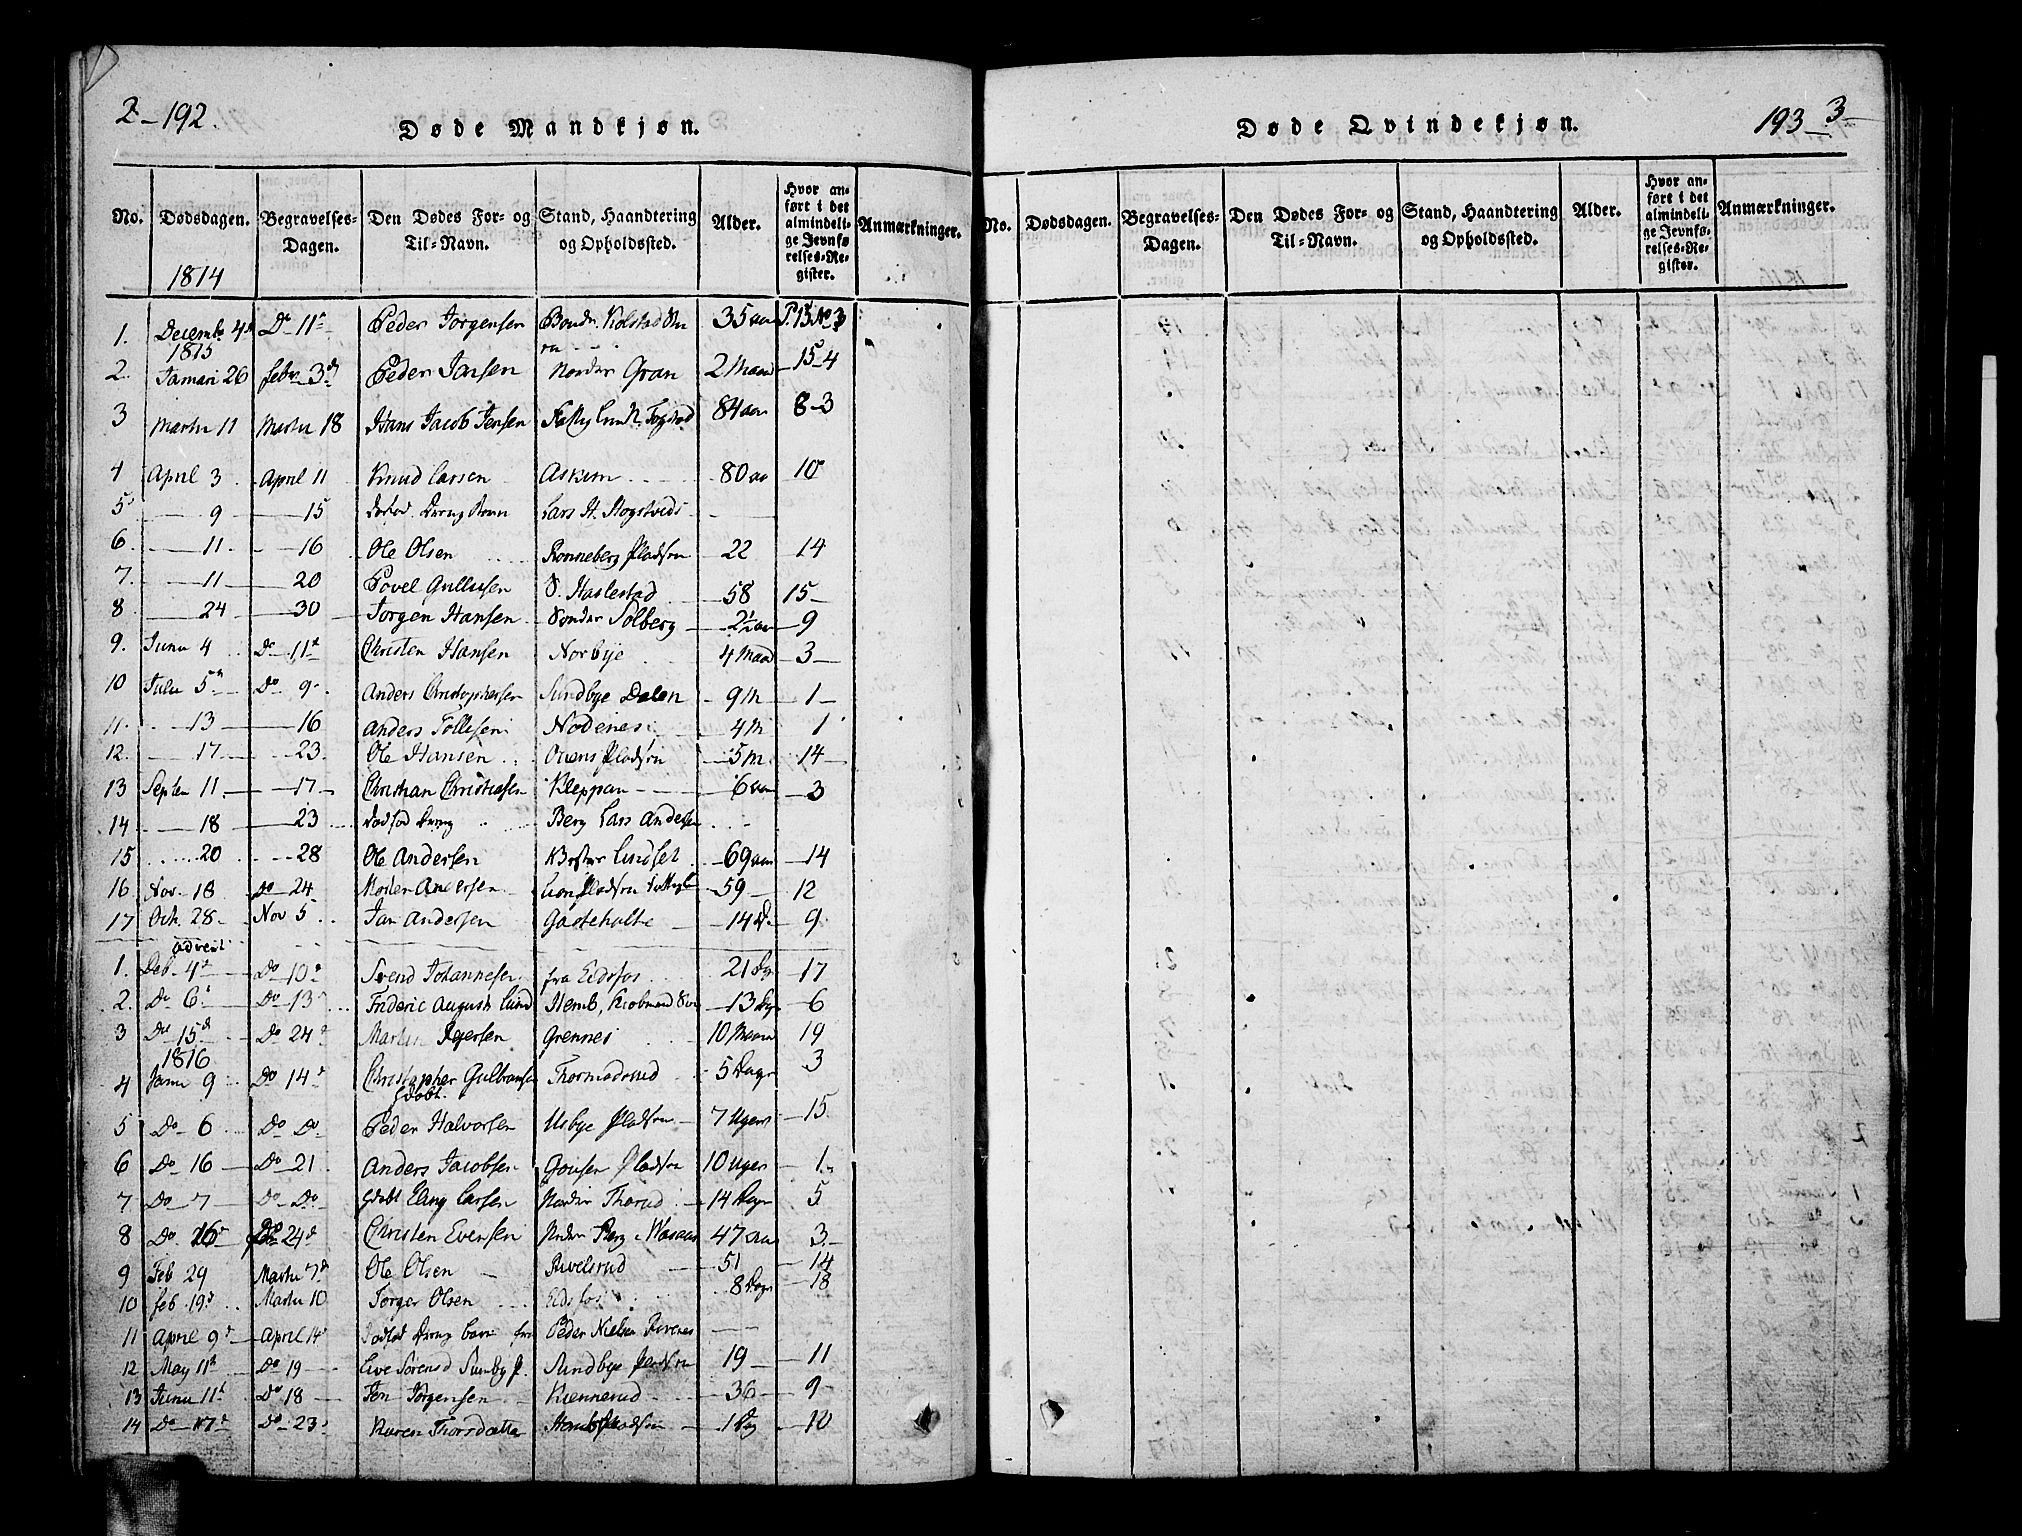 2-192.
Døde Mandkjøn.
No. Dødsdagen. Begravelses-Dagen. Den Dødes For- og Til-Navn. Stand, Haandtering og Opholdssted. Alder. Hvor anført i det almindelige Jevnførelses-Register. Anmærkninger.
1814
1. Decemb. 4d Do 11te Peder Jørgensen Bonde. Kolstad 35 aar P. 15 No 3
1815
2. Januari 26 febr. 3d Peder Jansen Nordre Gran 2 Maan 15-4
3 Martii 11 Martii 18 Hans Jacob Jensen 84 aar 8-3
4 April 3 April 11 Knud Larsen Askim 80 aar 10
5 9 15 dødfød Dreng Barn Lars H. Hogstveds
6. 11 16 Ole Olsen Rønneberg Pladsen 22 14
7. 11 20 Povel Gullusen S. Haslestad 58 15
8 24 30 Jørgen Hansen Søndre Solberg 2½ aar 9
9. Junii 4 Do 11te Christen Hansen Norbye 4 Maan 3
10 Julii 5te Do 9 Anders Christophersen Sundbye Dalen 9 M 1
11. 13 16 Anders Tollefsen Nodenes 4 M 1
12. 17 23. Ole Hansen Ouens Pladsen 5 M. 14
13 Septem 11 17 Christian Christiansen Kleppan 6 aar 3
14 18 23 dødfød Dreng Berg Lars Andersen
15 20 28 Ole Andersen Lindset 69 aar 14
16 Nov. 18 Do 24 Andersen 59 12
17 Octb. 28 Nov 5 Jan Andersen Gasteholte 14 D. 9
advent
1. Deb. 4d Do 10d Svend Johannesen fra Eidsfos 21 Dg 17
2. Do 6d Do 13d Frideric August Lund 13 Dg 6
3 Do 15d Do 24d Martin Grennes 10 Maan 19
1816
4 Janu 9 Do 14d Christopher Gulbransen Thormodsrud 5 Dage 3
5 Do 6 Do Do Peder Halvorsen Usbye Pladsen 7 Uger 15
6 Do 16 Do 21 Anders Jacobsen Pladsen 10 Uger 1
7 Do 7 Do Do Larsen Nordre Thorud 14 Dage 5
8 Do 16d Do 24d Christen Evensen Berg 47 aar 3
9 Feb 29 Martii 7d Ole Olsen 51 14
10 feb. 19d Martii 10 Torger Olsen Eidsfos 8 Dage 18
11 April 9d April 14d dødfød Dreng barn fra Peder Nielsen
12 May 11te Do 19 Sørensd Sundbye Pladsen 19 11
13 Junii 11te Do 18 Jon Jørgensen Kiennerud 36 9
14 Do 17d Do 23d Karen Thorsdatter Pladsen 1 Dag 10
193-3
Døde Qvindekjøn.
No. Dødsdagen. Begravelses-Dagen. Den Dødes For- og Til-Navn. Stand, Haandtering og Opholdssted. Alder. Hvor anført i det almindelige Jevnførelses-Register. Anmærkninger.